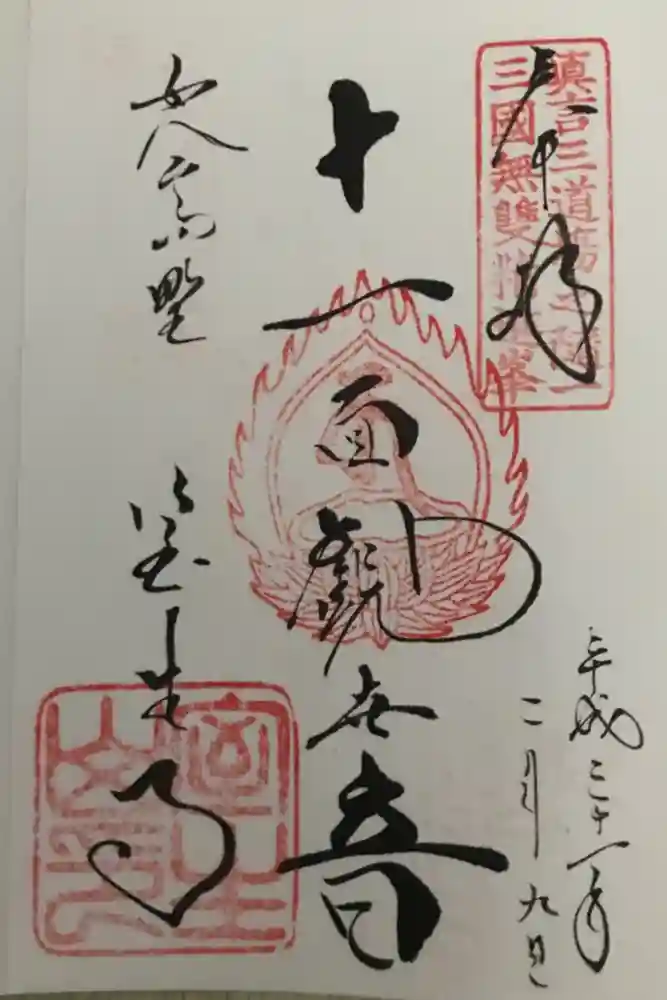 奉拝
眞言三道場之隨一
三國無雙精進峯
十一面觀世音
平成三十一年
二月九日
女人高野
室生寺